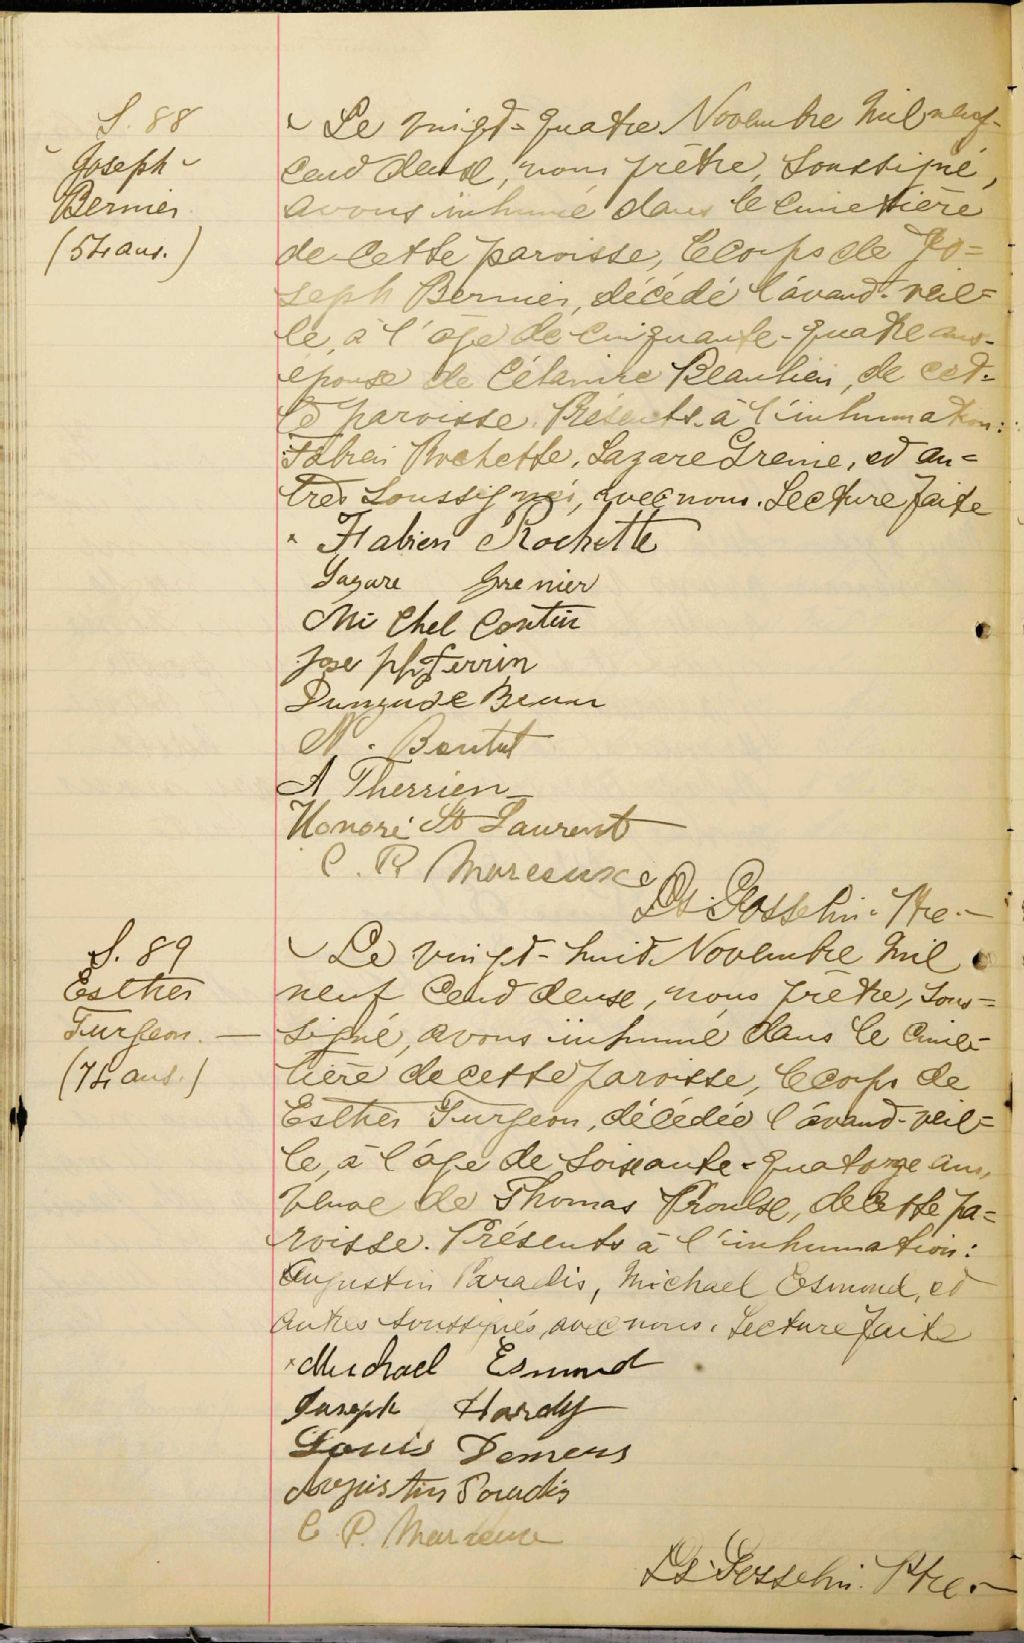 S. 88
Joseph
Bernier
(54 ans.)
Le vingt-quatre Novembre mil neuf-
cent douze, nous prêtre, soussigné,
avons inhumé dans le cimetière
de cette paroisse, le corps de Jo=
seph Bernier, décédé l'avant-veil=
le, à l'âge de cinquante-quatre ans,
époux de Célanire Beaulieu, de cet-
te paroisse. Présents à l'inhumation:
Fabien Rochette, Lazare Grenier, et au=
tres soussignés, avec nous. Lecture faite
Fabien Rochette
Lazare Grenier
Michel Cantin
Joseph Perrin
N. Boutet
A Therrien
Honoré St Laurent
C. P. Marceaux
Ls Gosselin. Ptre.
S. 89
Esther
Turgeon.
(74 ans.)
Le vingt-huit Novembre mil
neuf cent douze, nous prêtre, sous=
signé, avons inhumé dans le cime-
tière de cette paroisse, le corps de
Esther Turgeon, décédée l'avant-veil=
le, à l'âge de soixante-quatorze ans,
veuve de Thomas Proulx, de cette pa=
roisse. Présents à l'inhumation:
Augustin Paradis, Michael Esmond, et
autres soussignés, avec nous. Lecture faite
Michael Esmond
Joseph Hardy
Louis Demers
Augustin Paradis
C. P. Marceau
Ls Gosselin. Ptre.